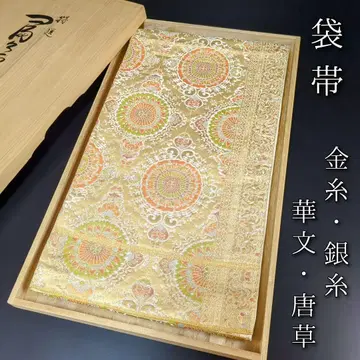 袋帯
金糸・銀糸
華文・唐草